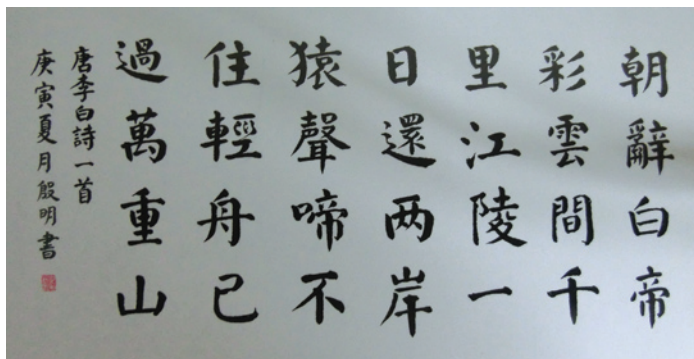 朝辭白帝
彩雲間千
里江陵一
日還两岸
猿聲啼不
住輕舟已
過萬重山
唐李白詩一首
庚寅夏月殷明書